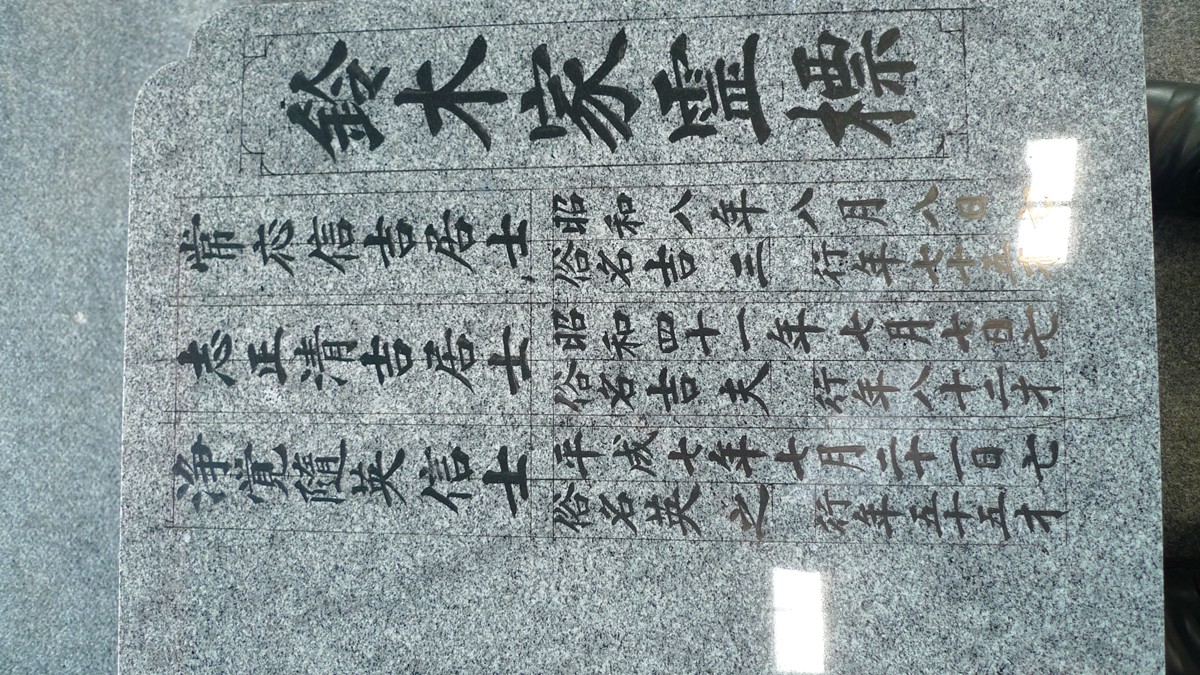 鈴木家霊標
常志信吉居士
昭和八年八月八日
俗名吉三 行年七十五才
志正清吉居士
昭和四十一年七月七日亡
俗名吉夫 行年八十二才
浄覚随英信士
平成七年七月二十一日亡
俗名英之 行年五十五才